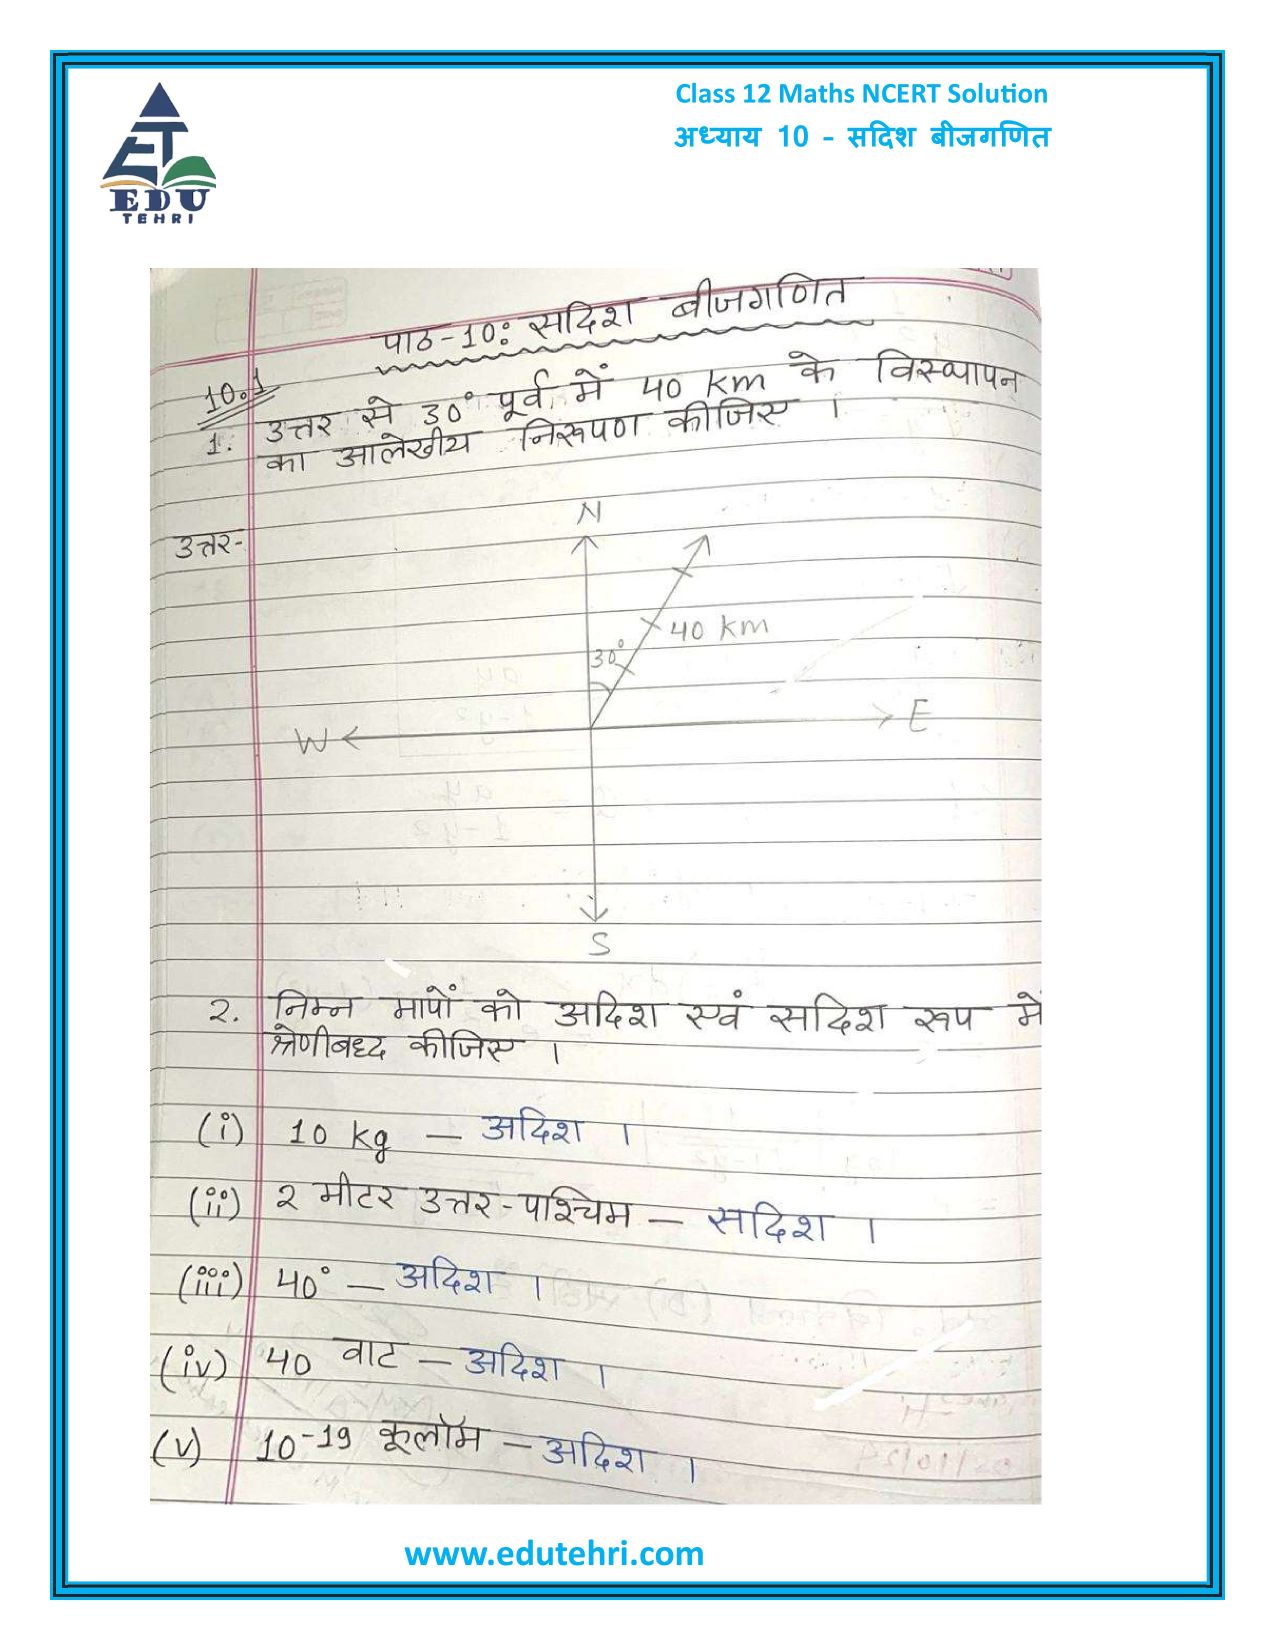 Class 12 Maths NCERT Solution
अध्याय 10 - सदिश बीजगणित
EDU
TEHRI
पाठ-10: सदिश बीजगणित
10.1
1. उत्तर से 30° पूर्व में 40 km के विस्थापन
का आलेखीय निरूपण कीजिए ।
उत्तर-
N
40 km
30°
W
E
S
2. निम्न मापों को अदिश एवं सदिश रूप में
श्रेणीबध्द कीजिए ।
(i) 10 kg — अदिश ।
(ii) 2 मीटर उत्तर-पश्चिम — सदिश ।
(iii) 40° — अदिश ।
(iv) 40 वाट — अदिश ।
(v) 10-19 कूलॉम — अदिश ।
www.edutehri.com